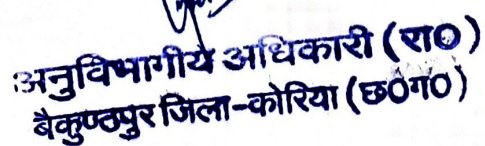 अनुविभागीय अधिकारी (रा०)
बैकुण्ठपुर जिला-कोरिया (छ०ग०)